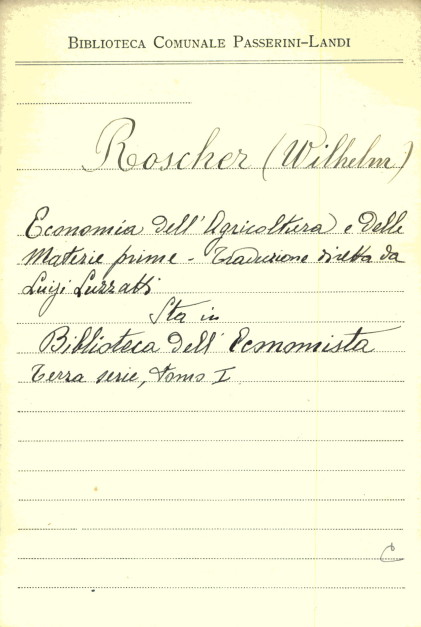 BIBLIOTECA COMUNALE PASSERINI-LANDI
Roscher (Wilhelm)
Economia dell'Agricoltura e delle
Materie prime - Traduzione diretta da
Luigi Luzzatti
Sta in
Biblioteca dell'Economista
Terza serie, tomo I
C